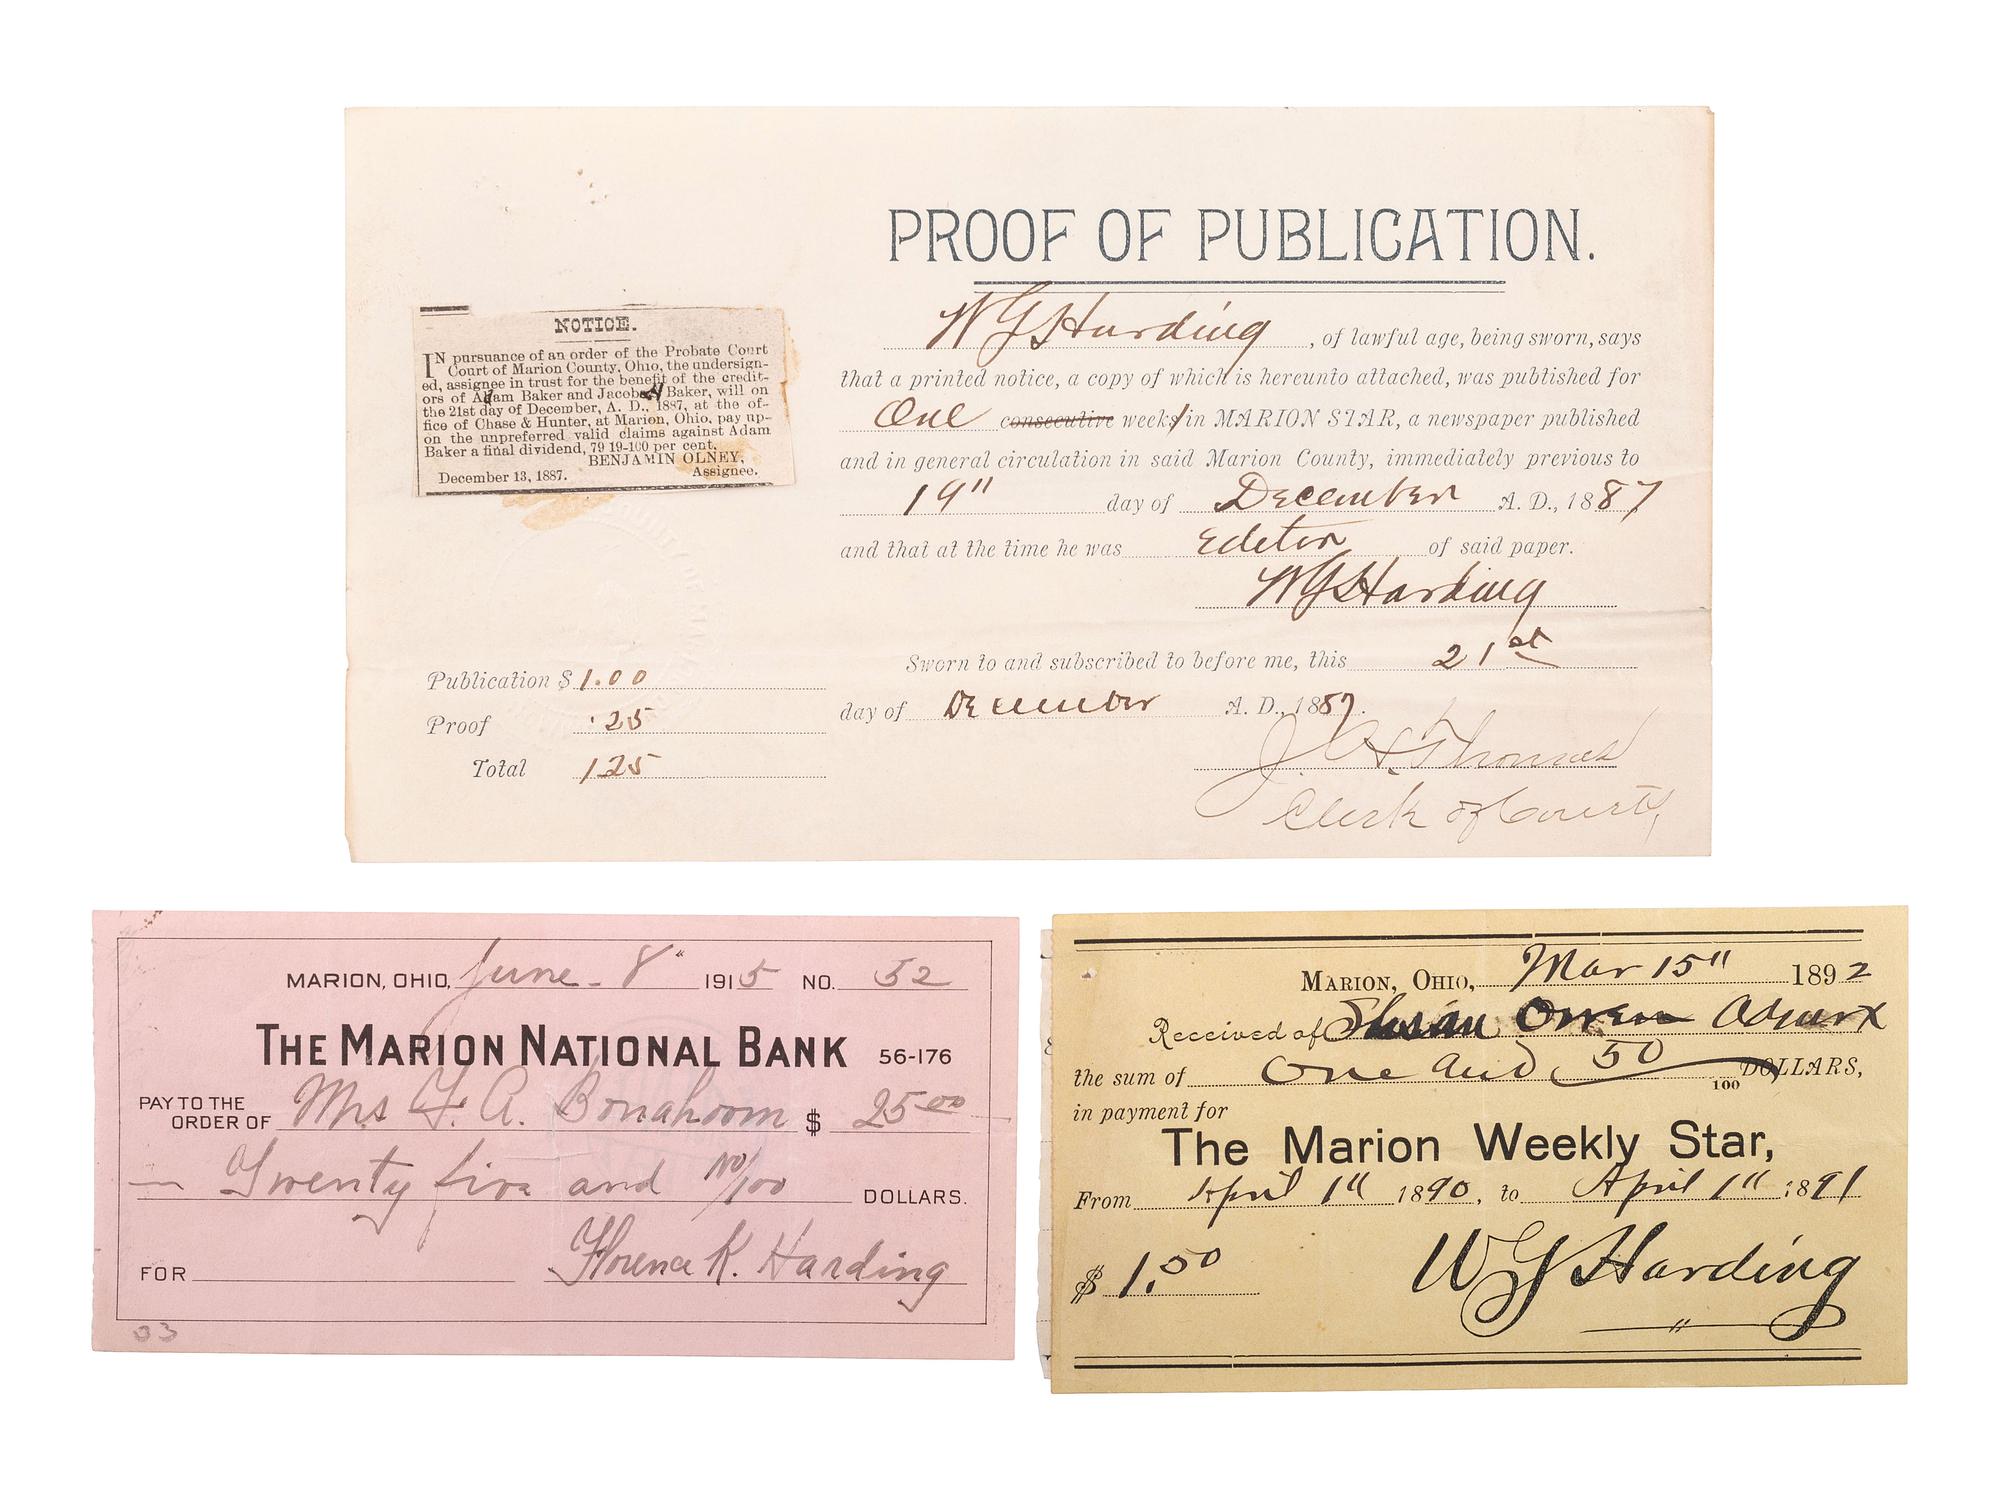 PROOF OF PUBLICATION.
WGHarding , of lawful age, being sworn, says
that a printed notice, a copy of which is hereunto attached, was published for
One consecutive weeks in MARION STAR, a newspaper published
and in general circulation in said Marion County, immediately previous to
19" day of December A. D., 1887
and that at the time he was Editor of said paper.
WGHarding
Sworn to and subscribed to before me, this 21st
day of December A. D., 1887.
Thomas
Clerk of Courts,
NOTICE.
IN pursuance of an order of the Probate Court
Court of Marion County, Ohio, the undersign-
ed, assignee in trust for the benefit of the credit-
ors of Adam Baker and Jacob Baker, will on
the 21st day of December, A. D., 1887, at the of-
fice of Chase & Hunter, at Marion, Ohio, pay up-
on the unpreferred valid claims against Adam
Baker a final dividend, 79 19-100 per cent.
BENJAMIN OLNEY,
December 13, 1887. Assignee.
Publication $ 1.00
Proof .25
Total 1.25
MARION, OHIO, June 8" 1915 NO. 52
THE MARION NATIONAL BANK 56-176
PAY TO THE
ORDER OF Mrs F. A. Bonahoom $ 25.00
Twenty five and no/100 DOLLARS.
Florence K. Harding
FOR
03
MARION, OHIO, Mar 15" 1892
Received of Owen
the sum of One and 50/100 DOLLARS,
in payment for
The Marion Weekly Star,
From April 1" 1890, to April 1" 1891
$ 1.50 WGHarding